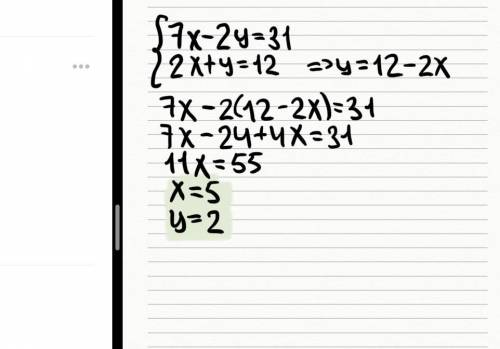 7x-2y=31
2x+y=12 =>y=12-2x
7x-2(12-2x)=31
7x-24+4x=31
11x=55
x=5
y=2